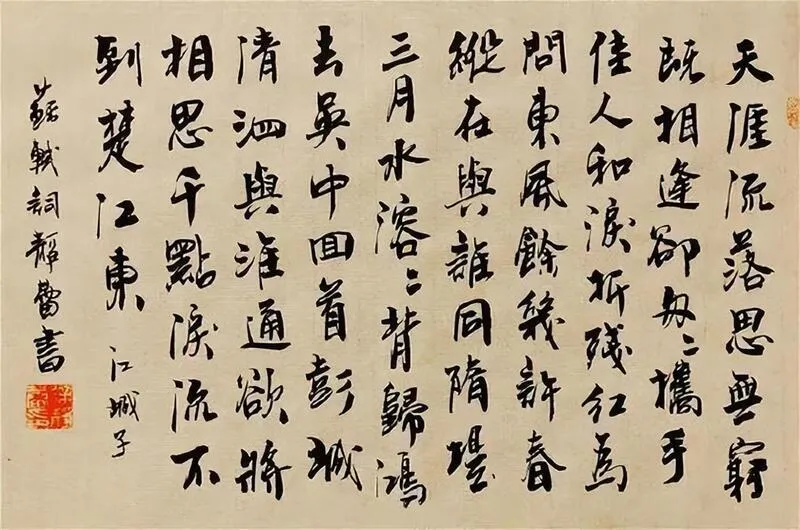 天涯流落思無窮
既相逢卻匆〻攜手
佳人和淚折残红為
問東風餘幾許春
縱在與誰同隋堤
三月水溶〻背歸鴻
去吳中回首彭城
清泗與淮通欲將
相思千點淚流不
到楚江東 江城子
蘇軾詞静蕾書